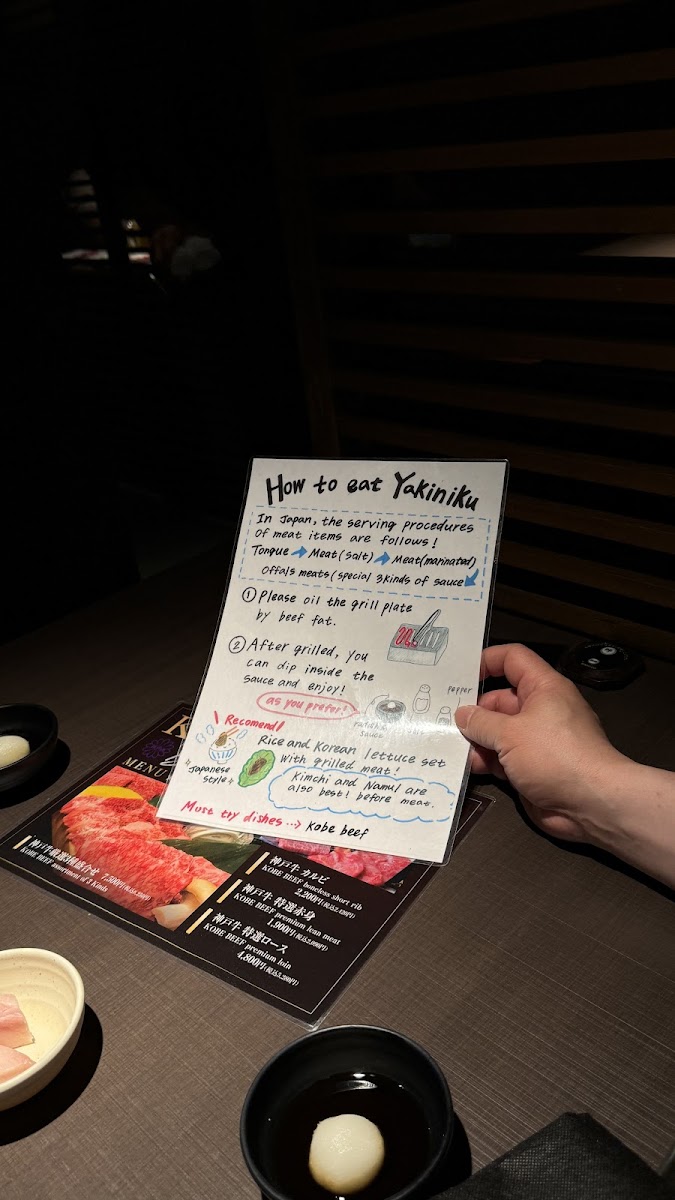 How to eat Yakiniku
In Japan, the serving procedures
of meat items are follows!
Tongue → Meat (salt) → Meat (marinated)
Offals meats (special 3kinds of sauce
① Please oil the grill plate
by beef fat.
② After grilled, you
can dip inside the
sauce and enjoy!
as you prefer!
sauce
pepper
\ Recomend /
Japanese
style
Rice and Korean lettuce set
with grilled meat!
Kimchi and Namul are
also best! before meat.
Must try dishes ⇢ Kobe beef
K
MENU
神戸牛厳選3種詰合せ 7,500円
KOBE BEEF assortment of 3 kinds
神戸牛 カルビ
KOBE BEEF boneless short rib
2,200円
神戸牛 特選赤身
KOBE BEEF premium lean meat
1,900円
神戸牛 特選ロース
KOBE BEEF premium loin
4,800円